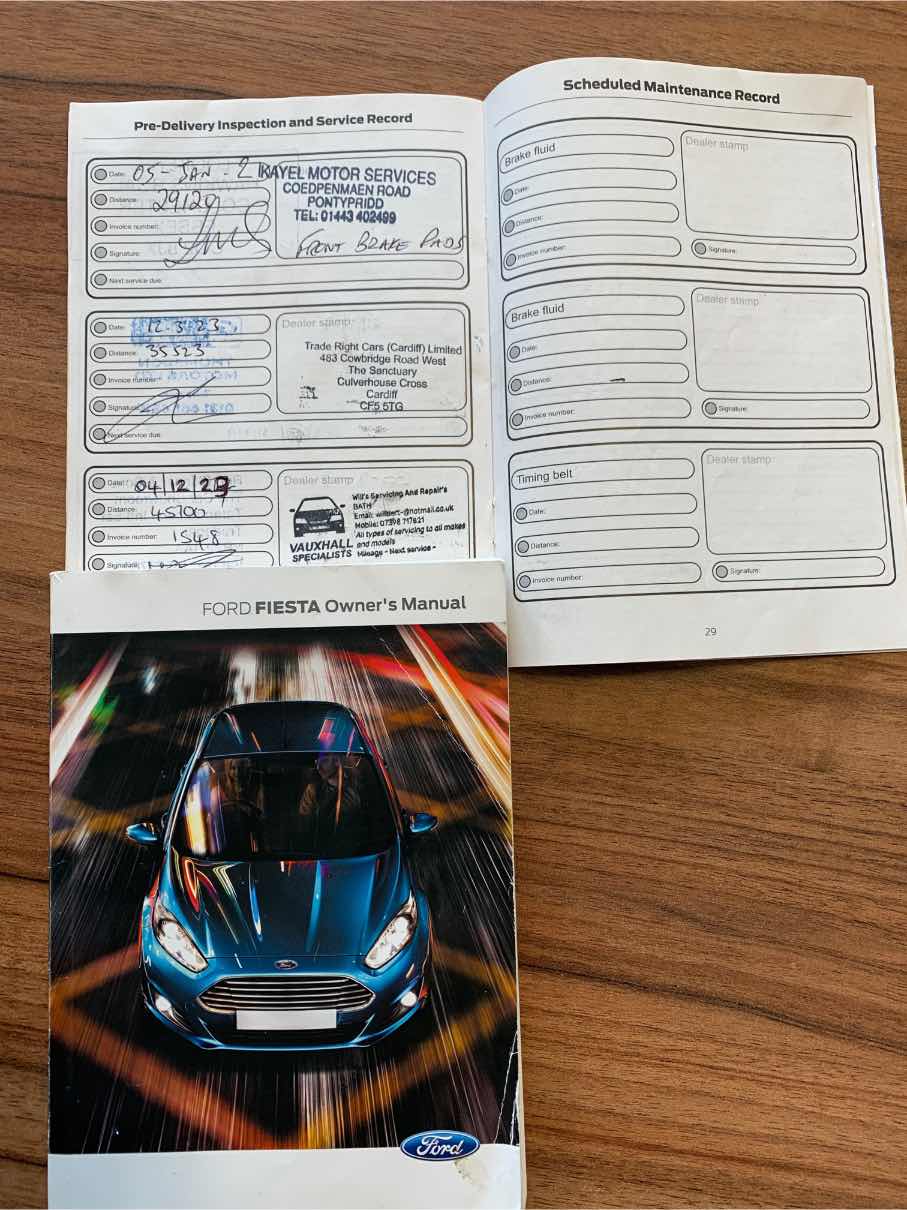 Pre-Delivery Inspection and Service Record
Date: 05-JAN-21
KAYEL MOTOR SERVICES
COEDPENMAEN ROAD
PONTYPRIDD
TEL: 01443 402499
Distance: 29120
Invoice number:
Signature:
FRONT BRAKE PADS
Next service due:
Date: 12.3.23
Dealer stamp
Distance: 35523
Trade Right Cars (Cardiff) Limited
483 Cowbridge Road West
The Sanctuary
Culverhouse Cross
Cardiff
CF5 5TG
Invoice number:
Signature:
Next service due:
Date: 04/12/23
Dealer stamp
Distance: 45700
Invoice number: 1548
Signature:
Will's Servicing And Repair's
BATH
Mobile: 07398 717821
All types of servicing to all makes
and models
Mileage - Next service -
VAUXHALL
SPECIALISTS
Scheduled Maintenance Record
Brake fluid
Dealer stamp
Date:
Distance:
Invoice number:
Signature:
Brake fluid
Dealer stamp
Date:
Distance:
Invoice number:
Signature:
Timing belt
Dealer stamp
Date:
Distance:
Invoice number:
Signature:
29
FORD FIESTA Owner's Manual
Ford